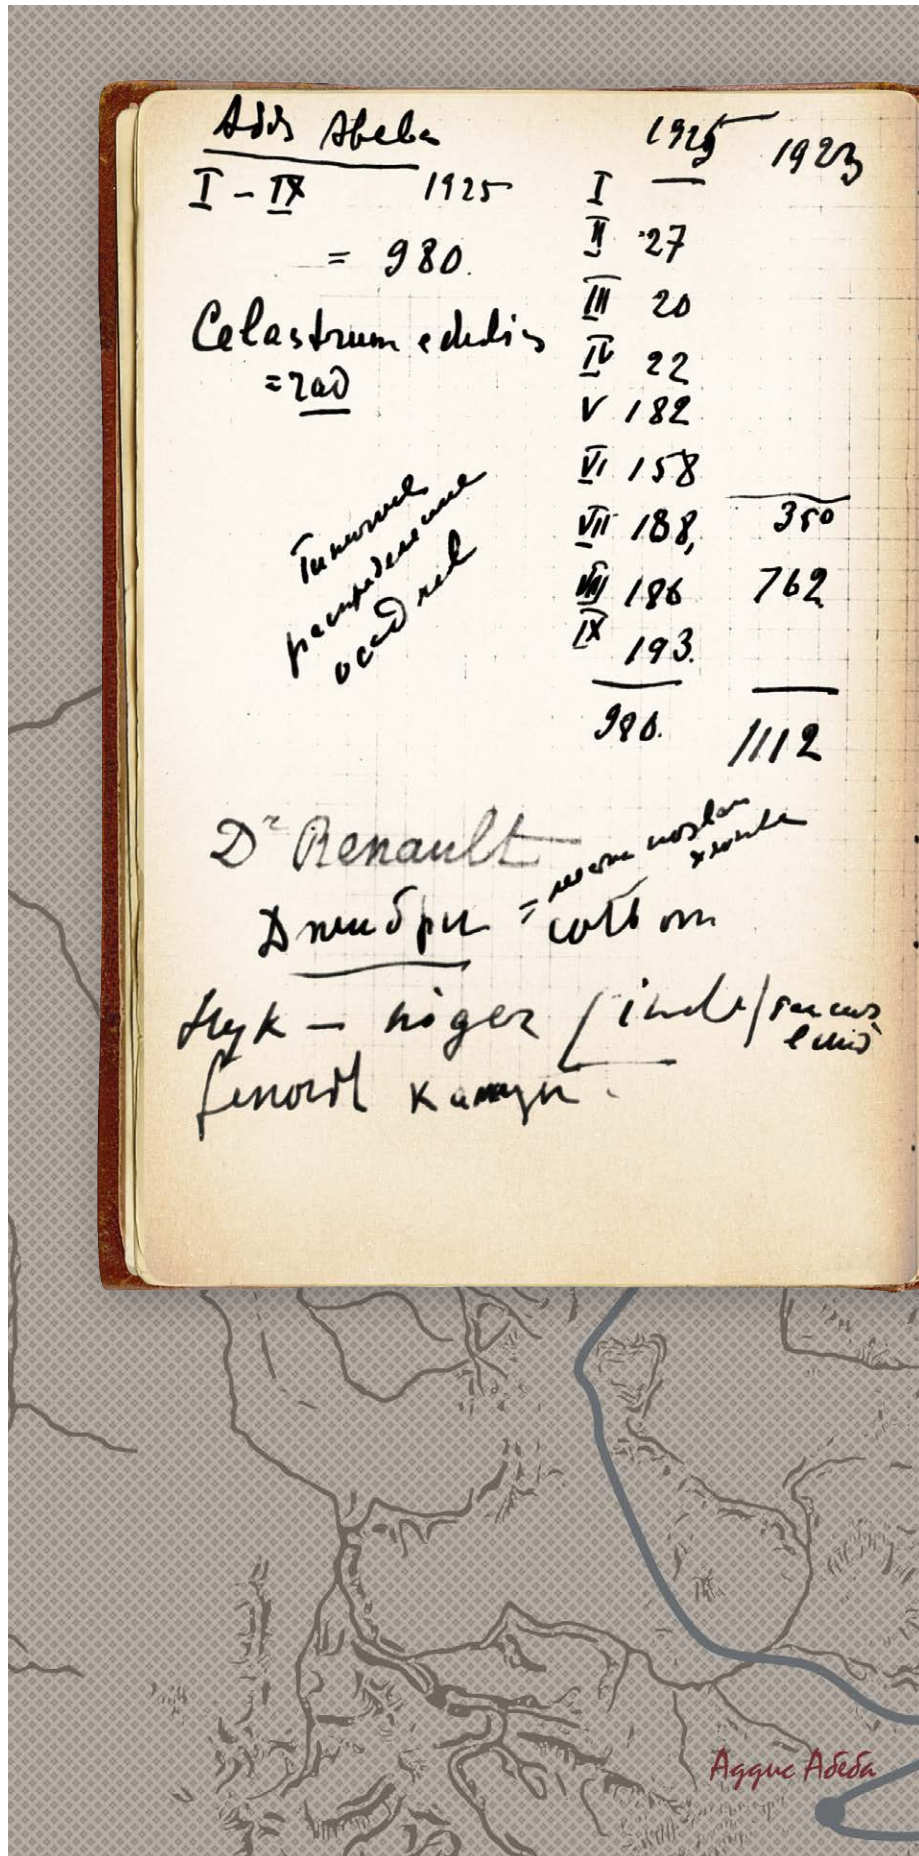 Addis Abeba
I – IX 1925
= 980.
Celastrum edulis
= гад
Типичное
распределение
осадков
1925 1923
I
II 27
III 20
IV 22
V 182
VI 158
VII 188, 350
VIII 186 762
IX 193.
980. 1112
Dr Renault
хлопка
= cotton
Нук – niger (inde)
Аддис Абеба